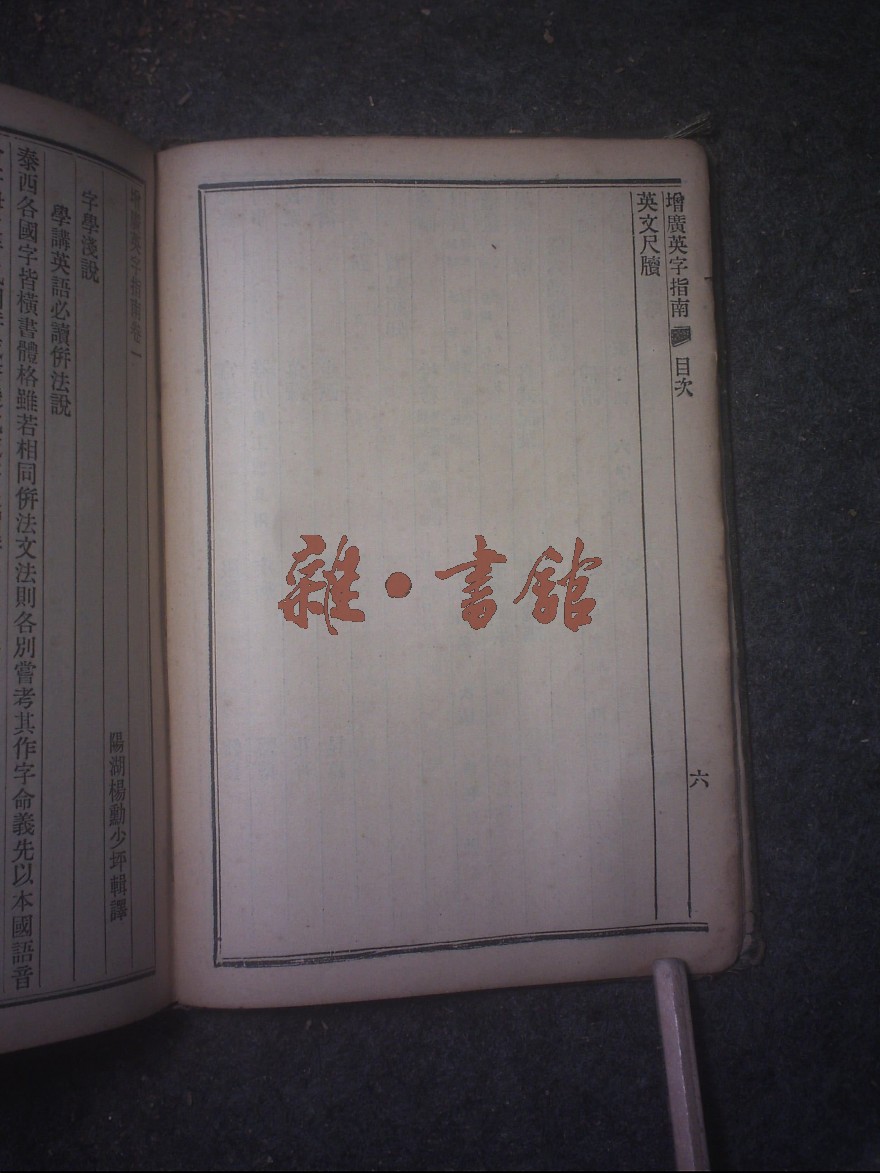 增廣英字指南 目次
六
英文尺牘
雜·書館
增廣英字指南卷一
陽湖楊勳少坪輯譯
字學淺說
學講英語必讀併法說
泰西各國字皆橫書體格雖若相同併法文法則各別嘗考其作字命義先以本國語音